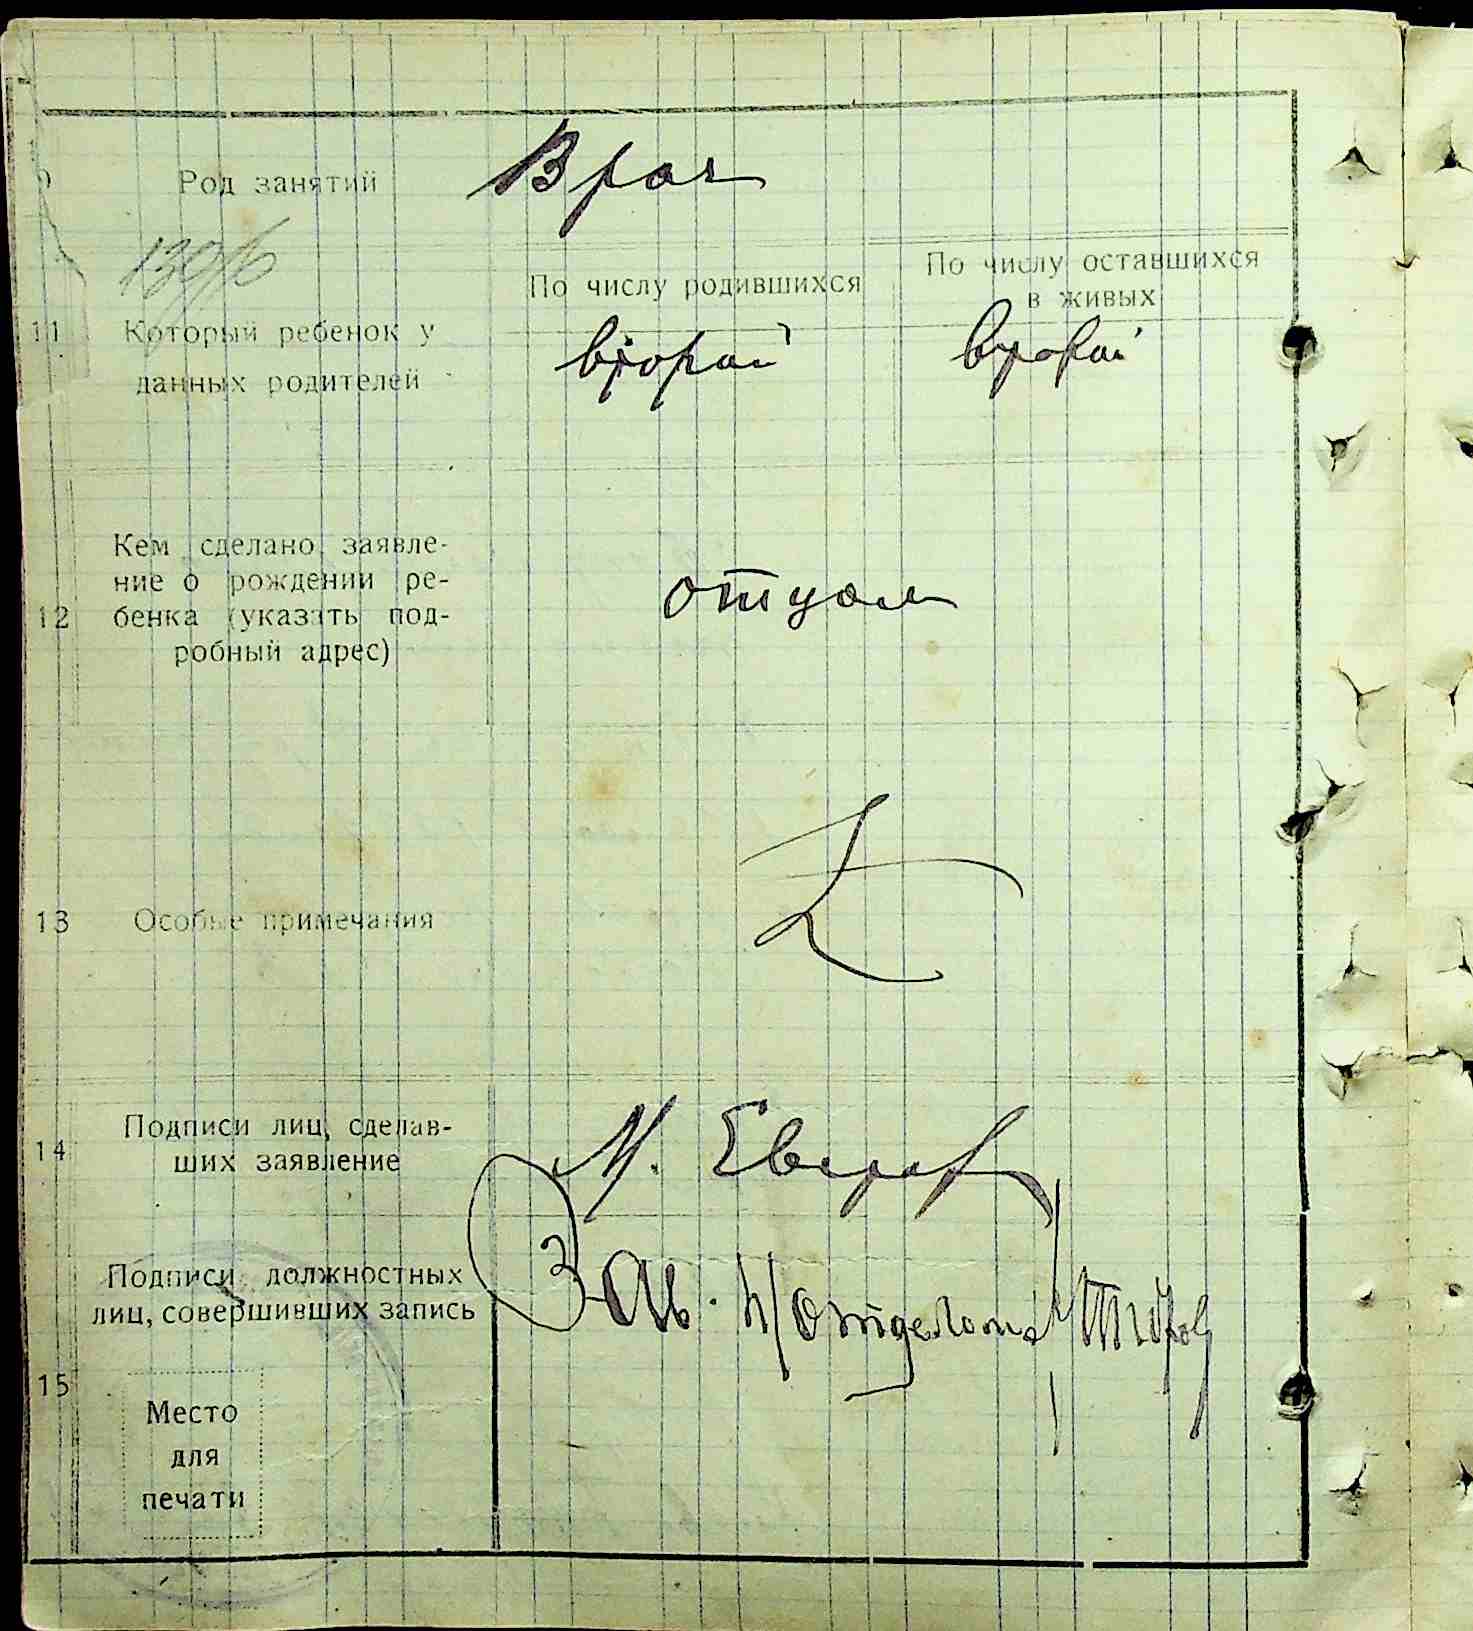 Род занятий Врач
По числу родившихся
По числу оставшихся
в живых
11 Который ребенок у
данных родителей
второй второй
Кем сделано заявле-
ние о рождении ре-
12 бенка (указать под-
робный адрес)
отцом
13 Особые примечания
14 Подписи лиц, сделав-
ших заявление
М.
Подписи должностных
лиц, совершивших запись
Зав.
15
Место
для
печати